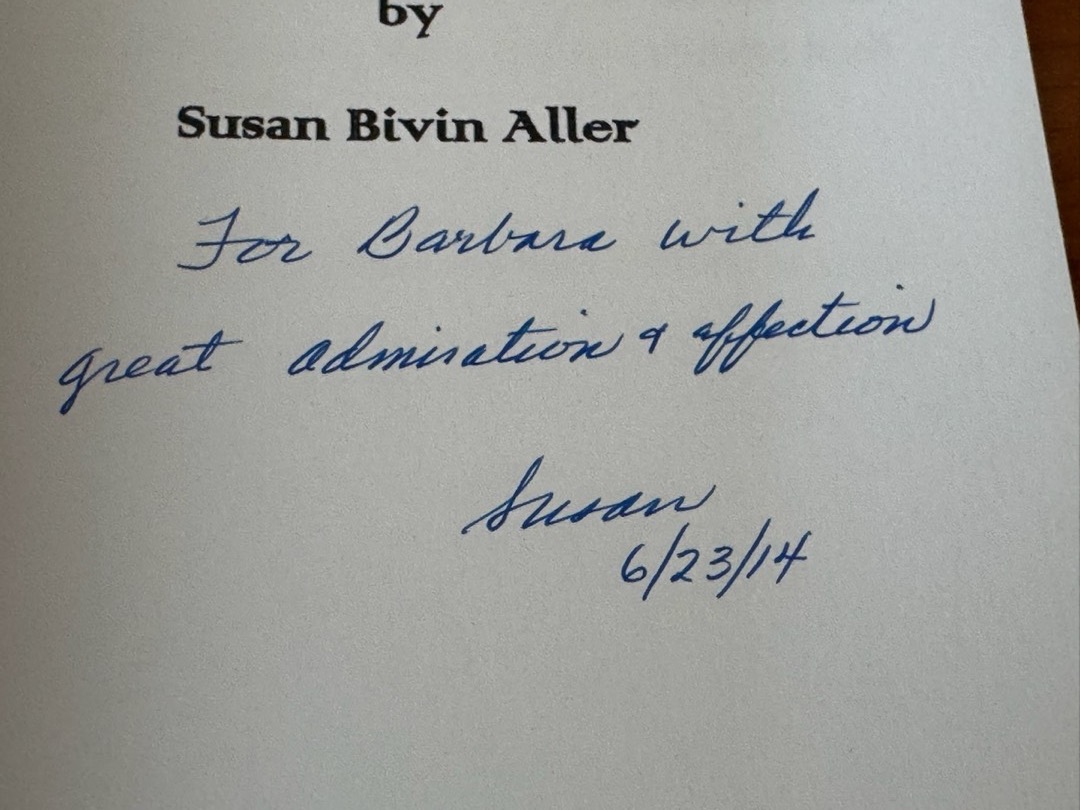 by
Susan Bivin Aller
For Barbara with
great admiration & affection
Susan
6/23/14